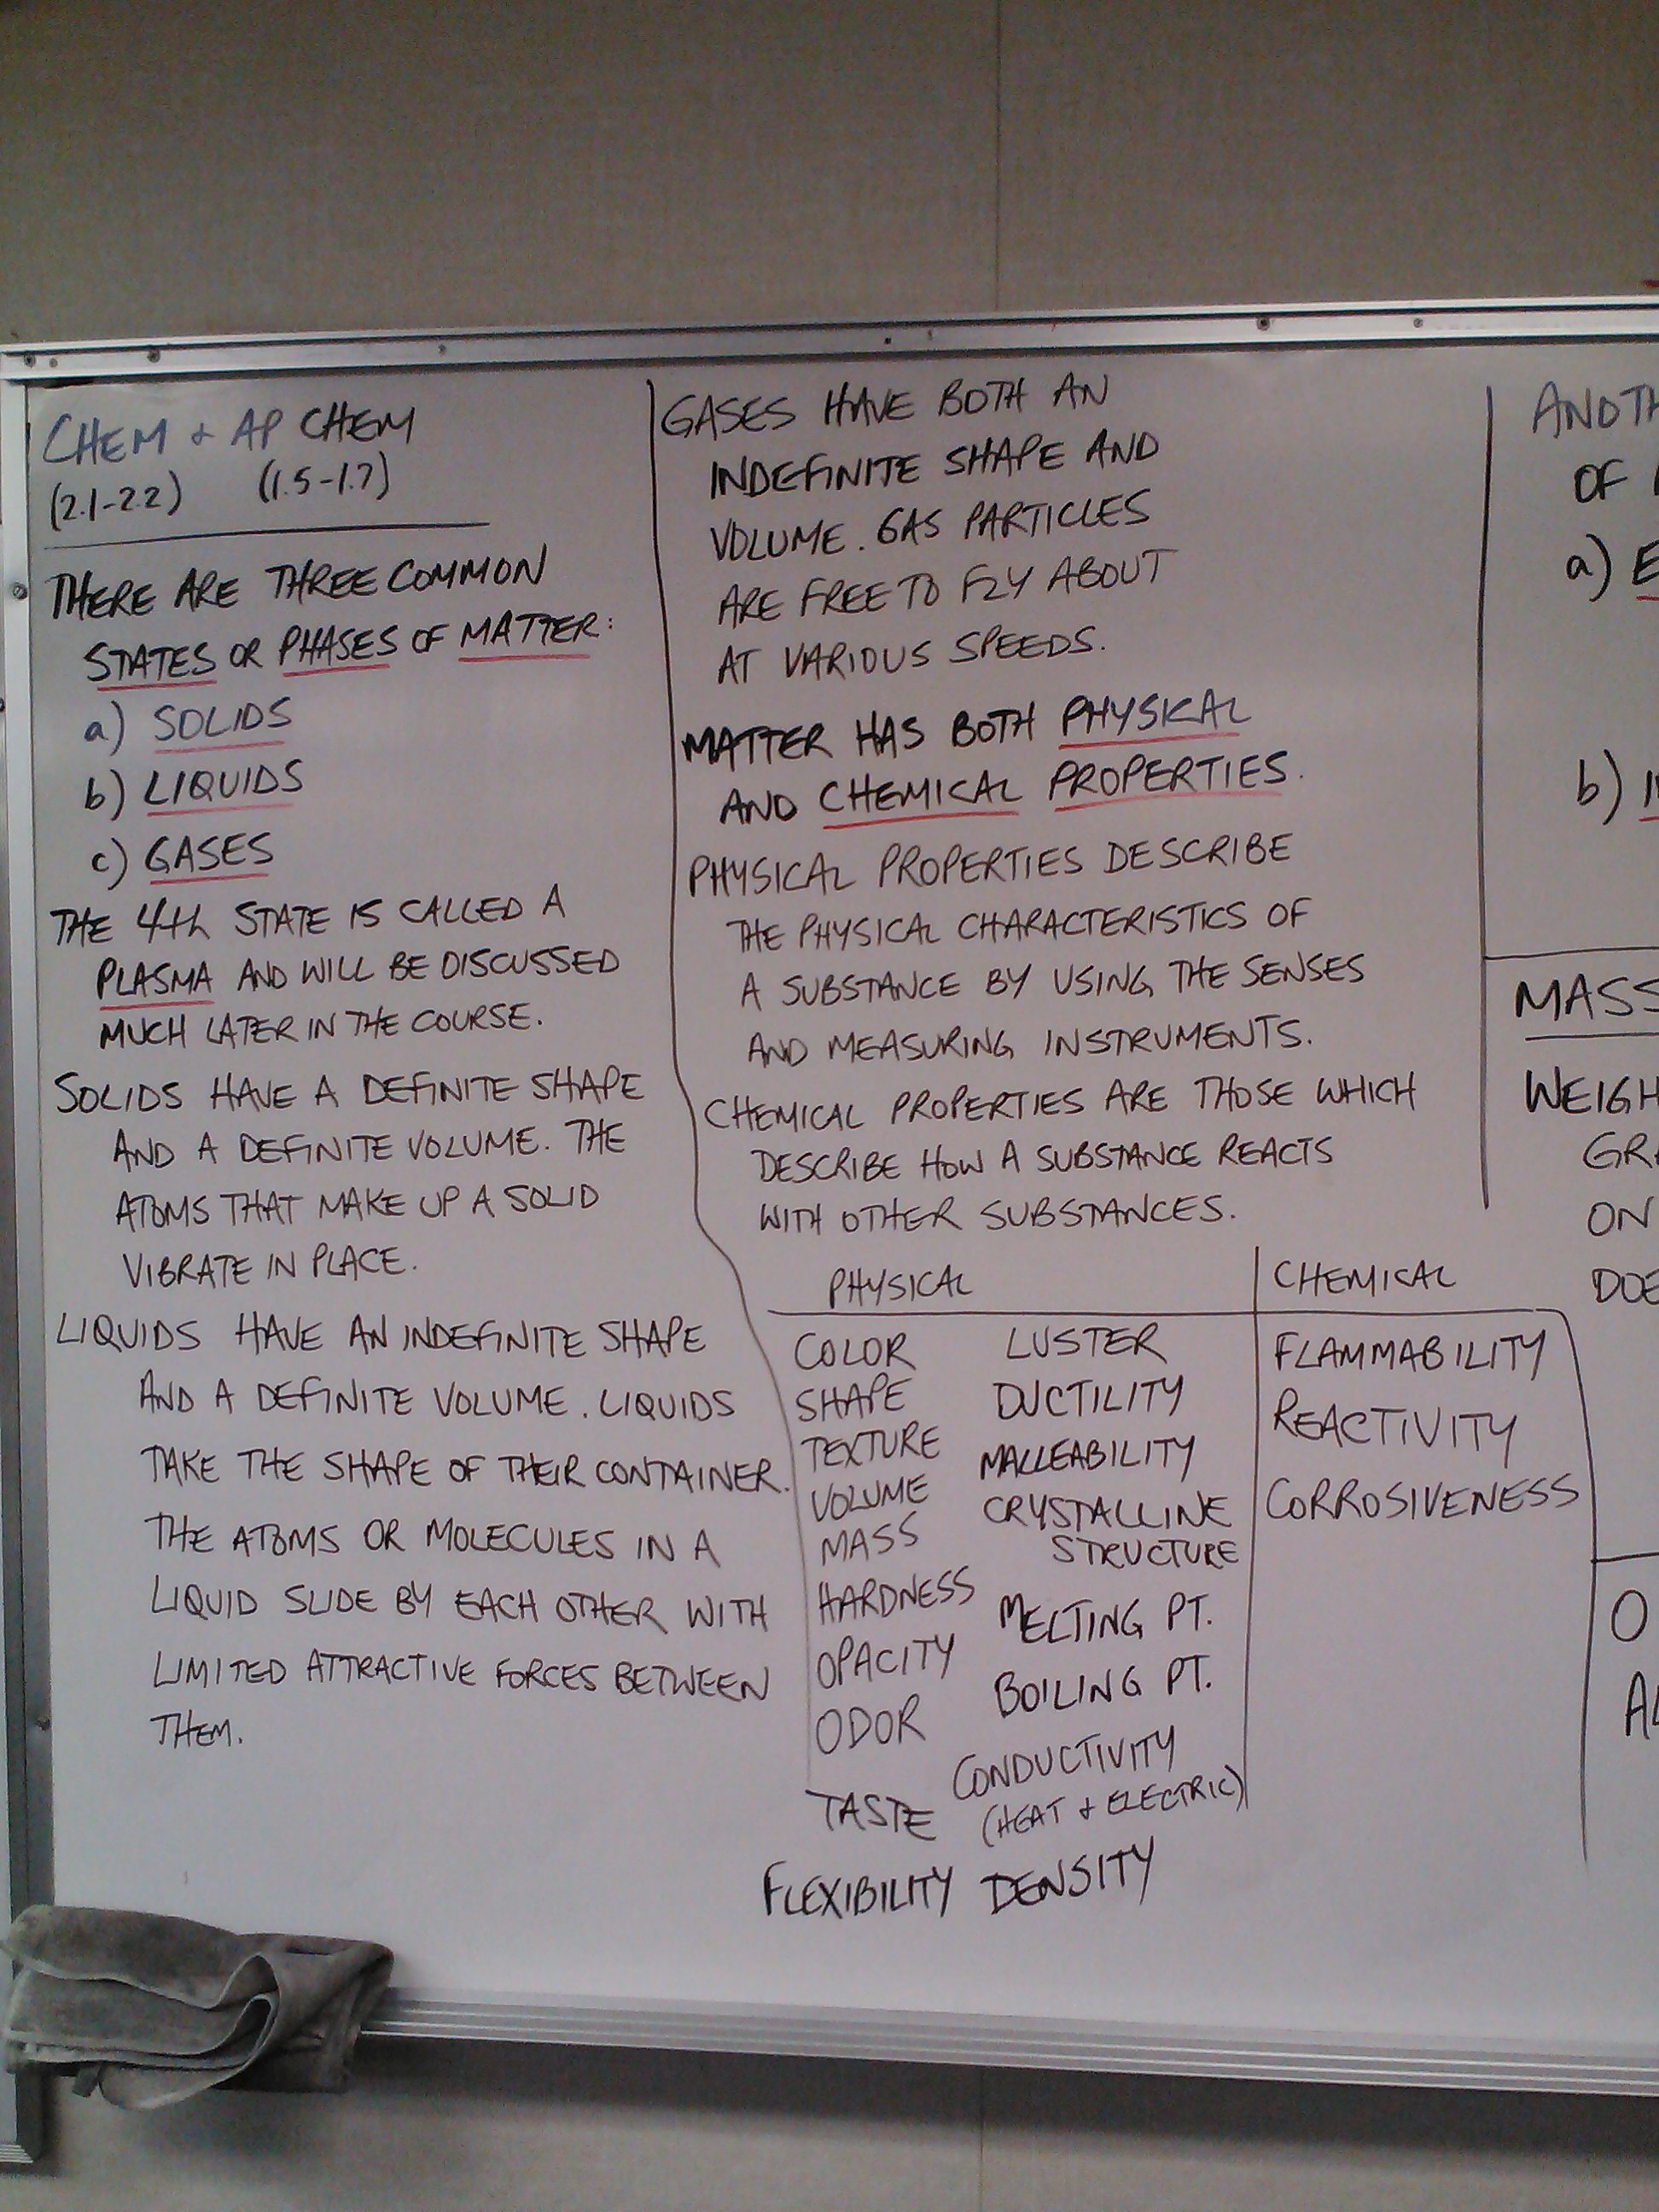 CHEM & AP CHEM
(2.1-2.2) (1.5-1.7)
THERE ARE THREE COMMON
STATES OR PHASES OF MATTER:
a) SOLIDS
b) LIQUIDS
c) GASES
THE 4th STATE IS CALLED A
PLASMA AND WILL BE DISCUSSED
MUCH LATER IN THE COURSE.
SOLIDS HAVE A DEFINITE SHAPE
AND A DEFINITE VOLUME. THE
ATOMS THAT MAKE UP A SOLID
VIBRATE IN PLACE.
LIQUIDS HAVE AN INDEFINITE SHAPE
AND A DEFINITE VOLUME. LIQUIDS
TAKE THE SHAPE OF THEIR CONTAINER.
THE ATOMS OR MOLECULES IN A
LIQUID SLIDE BY EACH OTHER WITH
LIMITED ATTRACTIVE FORCES BETWEEN
THEM.
GASES HAVE BOTH AN
INDEFINITE SHAPE AND
VOLUME. GAS PARTICLES
ARE FREE TO FLY ABOUT
AT VARIOUS SPEEDS.
MATTER HAS BOTH PHYSICAL
AND CHEMICAL PROPERTIES.
PHYSICAL PROPERTIES DESCRIBE
THE PHYSICAL CHARACTERISTICS OF
A SUBSTANCE BY USING THE SENSES
AND MEASURING INSTRUMENTS.
CHEMICAL PROPERTIES ARE THOSE WHICH
DESCRIBE HOW A SUBSTANCE REACTS
WITH OTHER SUBSTANCES.
PHYSICAL CHEMICAL
COLOR LUSTER FLAMMABILITY
SHAPE DUCTILITY REACTIVITY
TEXTURE MALLEABILITY
VOLUME CRYSTALLINE CORROSIVENESS
MASS STRUCTURE
HARDNESS MELTING PT.
OPACITY BOILING PT.
ODOR CONDUCTIVITY
TASTE (HEAT & ELECTRIC)
FLEXIBILITY DENSITY
OF
a)
b)
MASS
ON